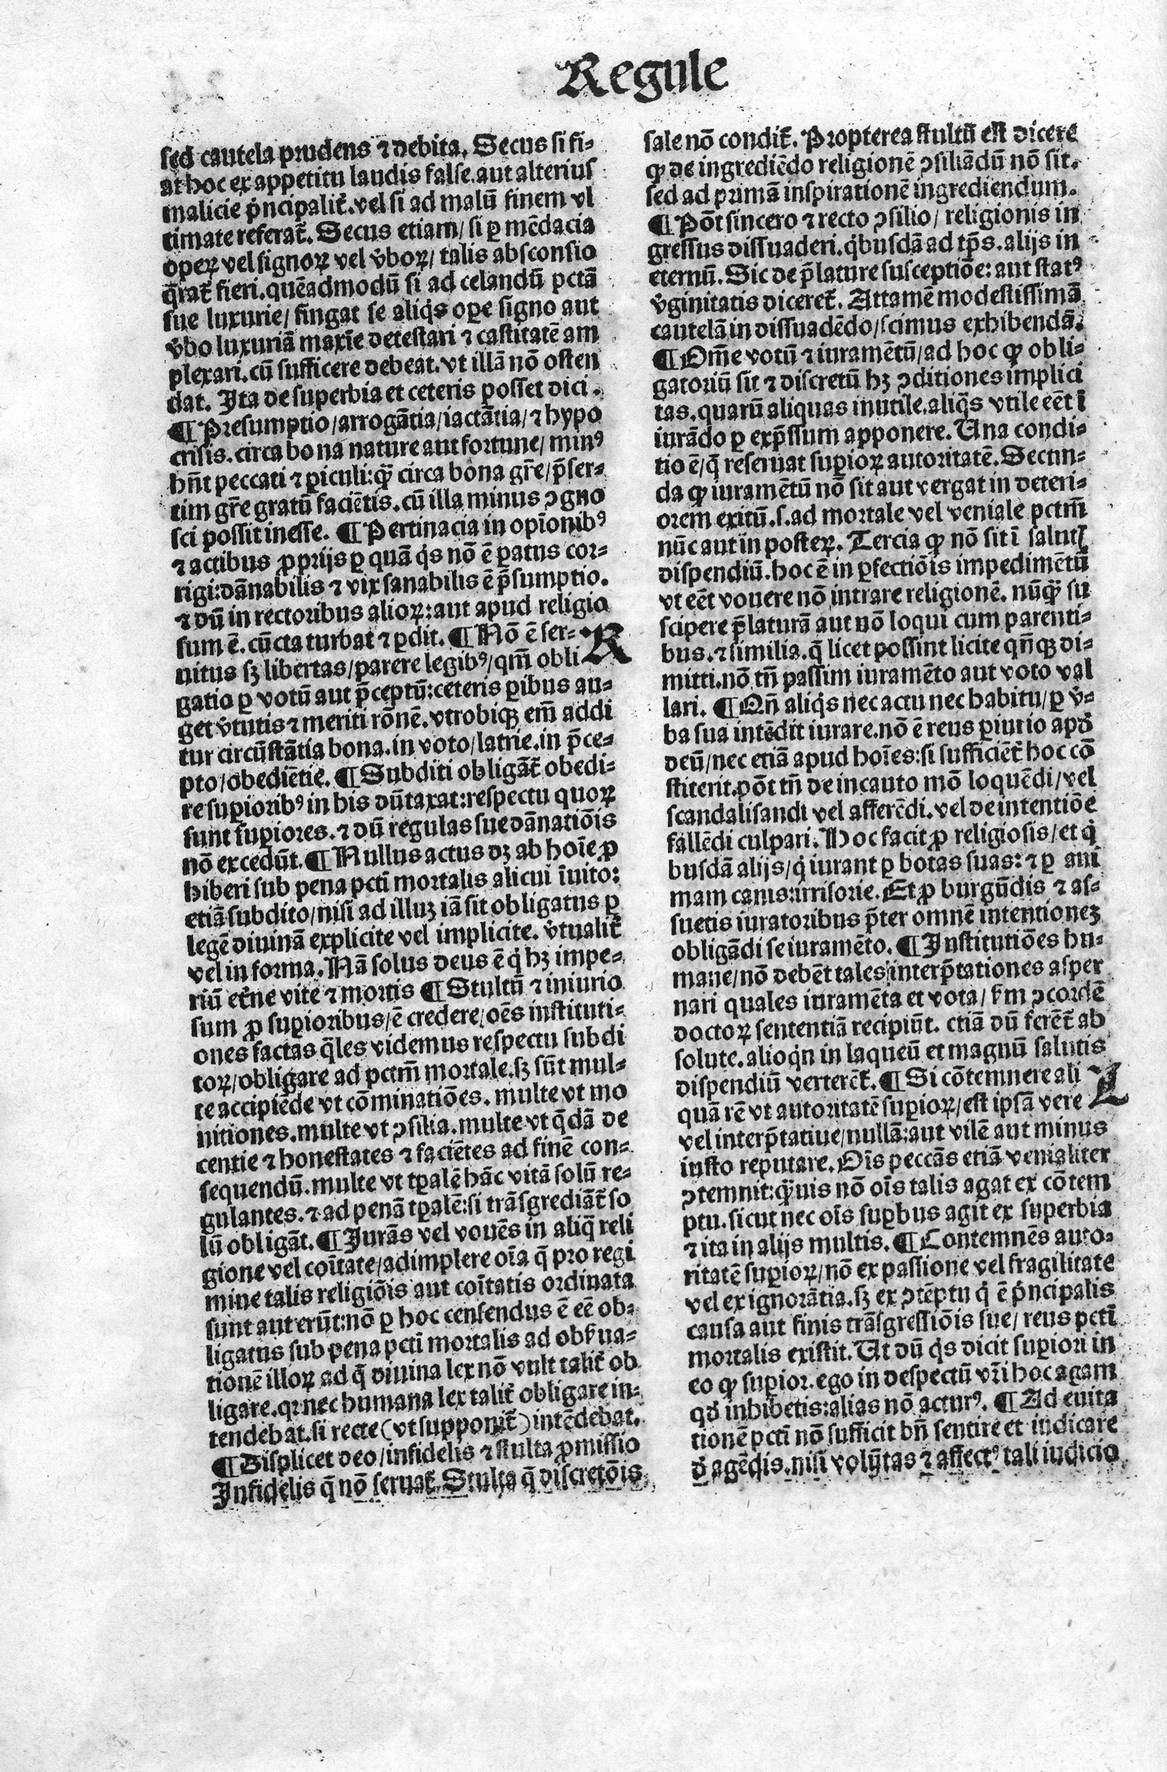 Regule
sed cautela prudens ⁊ debita. Secus si fi-
at hoc ex appetitu laudis false. aut alterius
malicie pͥncipalit̃. vel si ad malũ finem vl
timate referat̃. Secus etiam / si ꝑ mẽdacia
operꝝ vel signoꝝ vel v̾boꝝ / talis absconsio
q̃rat̃ fieri. quẽadmodũ si ad celandũ pctã
sue luxurie / fingat se aliq̇s oꝑe signo aut
v̾bo luxuriã maxĩe detestari ⁊ castitatẽ am
plexari. cũ sufficere debeat. vt illã nõ osten
dat. Ita de superbia et ceteris posset dici.
¶ Presumptio / arrogãtia / iactãtia / ⁊ hypo
crisis. circa bona nature aut fortune / minꝰ
hñt peccati ⁊ ꝑiculi: q̃ꝫ circa bona gr̃e / p̃ser-
tim gr̃e gratũ faciẽtis. cũ illa minus ↄgno
sci possit inesse. ¶ Pertinacia in opĩonibꝰ
⁊ actibus ꝓprijs ꝑ quã q̇s nõ ẽ ꝑatus cor-
rigi: dãnabilis ⁊ vix sanabilis ẽ p̃sumptio.
⁊ dũ in rectoribus alioꝝ: aut apud religio
sum ẽ. cũcta turbat ⁊ ꝑdit. ¶ Nõ ẽ ser- K
uitus sꝫ libertas / parere legibꝰ / qm̃ obli
gatio ꝑ votũ aut p̃ceptũ: ceteris ꝑibus au-
get v̾tutis ⁊ meriti rõnẽ. vtrobiqꝫ em̃ addi
tur circũstãtia bona. in voto / latrie. in p̃ce-
pto / obediẽtie. ¶ Subditi obligãt̃ obedi-
re suꝑioribꝰ in his dũtaxat: respectu quoꝝ
sunt suꝑiores. ⁊ dũ regulas sue dãnatiõis
nõ excedũt. ¶ Nullus actus dꝫ ab hoĩe ꝓ
hiberi sub pena pcti mortalis alicui ĩuito:
etiã subdito / nisi ad illuꝫ iã sit obligatus ꝑ
legẽ diuinã explicite vel implicite. v̾tualit̃
vel in forma. Nã solus deus ẽ q̇ hꝫ impe-
riũ et̾ne vite ⁊ mortis ¶ Stultũ ⁊ iniurio
sum ꝓ suꝑioribus / ẽ credere / oẽs instituti-
ones factas q̃les videmus respectu subdi
toꝝ / obligare ad pctm̃ mortale. sꝫ sũt mul-
te accipiẽde vt cõminatiões. multe vt mo
nitiones. multe vt ↄsilia. multe vt q̃dã de
centie ⁊ honestates ⁊ faciẽtes ad finẽ con-
sequendũ. multe vt tꝑalẽ hãc vitã solũ re-
gulantes. ⁊ ad penã tꝑalẽ: si trãsgrediãt̃ so
lũ obligãt. ¶ Jurãs vel vouẽs in aliq̃ reli
gione vel coĩtate / adimplere oĩa q̃ pro regi
mine talis religiõis aut coĩtatis ordinata
sunt aut erũt: nõ ꝑ hoc censendus ẽ eẽ ob-
ligatus sub pena pcti mortalis ad obs̾ua-
tionẽ illoꝝ ad q̃ diuina lex nõ vult talit̃ ob
ligare. qꝛ nec humana lex talit̃ obligare in-
tendebat. si recte (vt supponit̃) intẽdebat.
¶ Displicet deo / infidelis ⁊ stulta ꝓmissio
Infidelis q̃ nõ seruat̃. Stulta q̃ discretõis
sale nõ condit̃. Propterea stultũ est dicere
ꝙ de ingrediẽdo religionẽ ↄsiliãdũ nõ sit.
sed ad primã inspirationẽ ingrediendum.
¶ Põt sincero ⁊ recto ↄsilio / religionis in
gressus dissuaderi. q̇busdã ad tp̃s. alijs in
eternũ. Sic de p̃lature susceptiõe: aut statꝰ
v̾ginitatis diceret̃. Attamẽ modestissimã
cautelã in dissuadẽdo / scimus exhibendã.
¶ Om̃e votũ ⁊ iuramẽtũ / ad hoc ꝙ obli-
gatoriũ sit ⁊ discretũ hꝫ ↄditiones implici
tas. quarũ aliquas inutile. aliq̃s vtile eẽt ĩ
iurãdo ꝑ exp̃ssum apponere. Una condi-
tio ẽ / q̃ reseruat suꝑioꝝ autoritatẽ. Secun-
da ꝙ iuramẽtũ nõ sit aut vergat in deteri-
orem exitũ. s. ad mortale vel veniale pctm̃
nũc aut in posteꝝ. Tercia ꝙ nõ sit ĩ salutꝭ
dispendiũ. hoc ẽ in ꝑfectiõis impedimẽtũ
vt eẽt vouere nõ intrare religionẽ. nũq̃ꝫ su
scipere p̃laturã aut nõ loqui cum parenti-
bus. ⁊ similia. q̃ licet possint licite qñqꝫ di-
mitti. nõ tñ passim iuramẽto aut voto val
lari. ¶ Qñ aliq̇s nec actu nec habitu / ꝑ v̾-
ba sua intẽdit iurare. nõ ẽ reus ꝑiurio apd̾
deũ / nec etiã apud hoĩes: si sufficiẽt̃ hoc cõ
stiterit. põt tñ de incauto mõ loquẽdi / vel
scandalisandi vel afferẽdi. vel de intentiõe
fallẽdi culpari. Hoc facit ꝓ religiosis / et q̇
busdã alijs / q̇ iurant ꝑ botas suas: ⁊ ꝑ ani
mam canis: irrisorie. Et ꝓ burgũdis ⁊ as-
suetis iuratoribus p̃ter omnẽ intentioneꝫ
obligãdi se iuramẽto. ¶ Institutiões hu-
mane / nõ debẽt tales interp̃tationes asper
nari quales iuramẽta et vota / s̾m ↄcordẽ
doctoꝝ sententiã recipiũt. etiã dũ ferẽt̃ ab
solute. alioq̇n in laqueũ et magnũ salutis
dispendiũ verterẽt̃. ¶ Si cõtemnere ali L
quã rẽ vt autoritatẽ suꝑioꝝ / est ipsã vere
vel interp̃tatiue / nullã: aut vilẽ aut minus
iusto reputare. Oĩs peccãs etiã venialiter
ↄtemnit: q̃ꝫuis nõ oĩs talis agat ex cõtem
ptu. sicut nec oĩs suꝑbus agit ex superbia
⁊ ita in alijs multis. ¶ Contemnẽs auto-
ritatẽ suꝑioꝝ / nõ ex passione vel fragilitate
vel ex ignorãtia. sꝫ ex ↄtẽptu q̇ ẽ pͥncipalis
causa aut finis trãsgressiõis sue / reus pcti
mortalis existit. Ut dũ q̇s dicit suꝑiori in
eo ꝙ suꝑior. ego in despectũ vr̃i hoc agam
qd̾ inhibetis: alias nõ acturꝰ. ¶ Ad euita
tionẽ pcti nõ sufficit bñ sentire et iudicare
d̾ agẽdis. nisi volũtas ⁊ affectꝰ tali iudicio